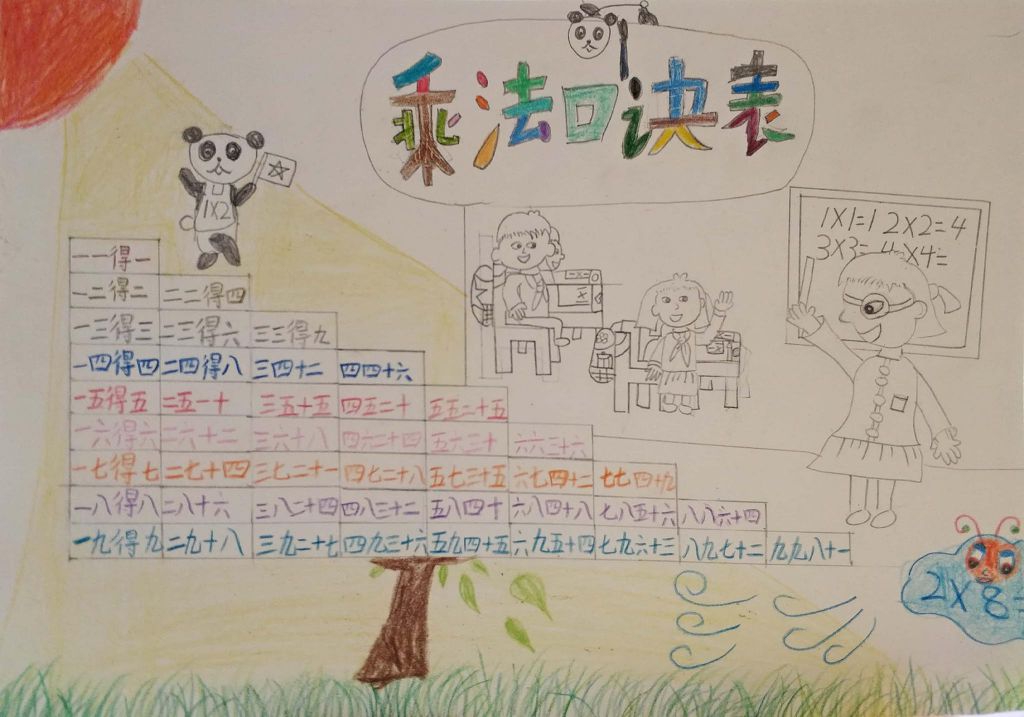 乘法口诀表
1X2
1X1=1 2X2=4
3X3= 4X4=
一一得一
一二得二 二二得四
一三得三 二三得六 三三得九
一四得四 二四得八 三四十二 四四十六
一五得五 二五一十 三五十五 四五二十 五五二十五
一六得六 二六十二 三六十八 四六二十四 五六三十 六六三十六
一七得七 二七十四 三七二十一 四七二十八 五七三十五 六七四十二 七七四十九
一八得八 二八十六 三八二十四 四八三十二 五八四十 六八四十八 七八五十六 八八六十四
一九得九 二九十八 三九二十七 四九三十六 五九四十五 六九五十四 七九六十三 八九七十二 九九八十一
21X8=